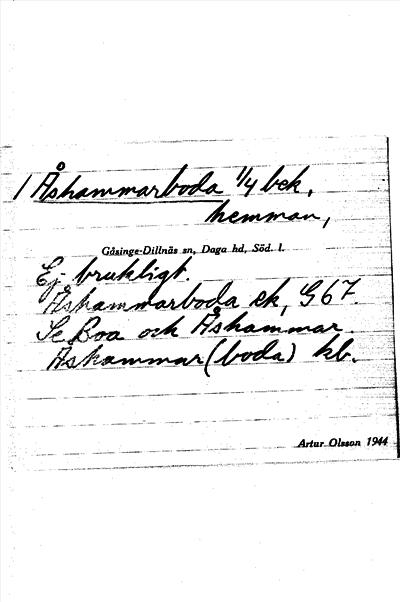 1 Åshammarboda 1/4 bek.
hemman,
Gåsinge-Dillnäs sn, Daga hd, Söd. l.
Ej brukligt.
Åshammarboda ek, G 67.
Se Boa och Åshammar.
Åshammar(boda) kb.
Artur Olsson 1944